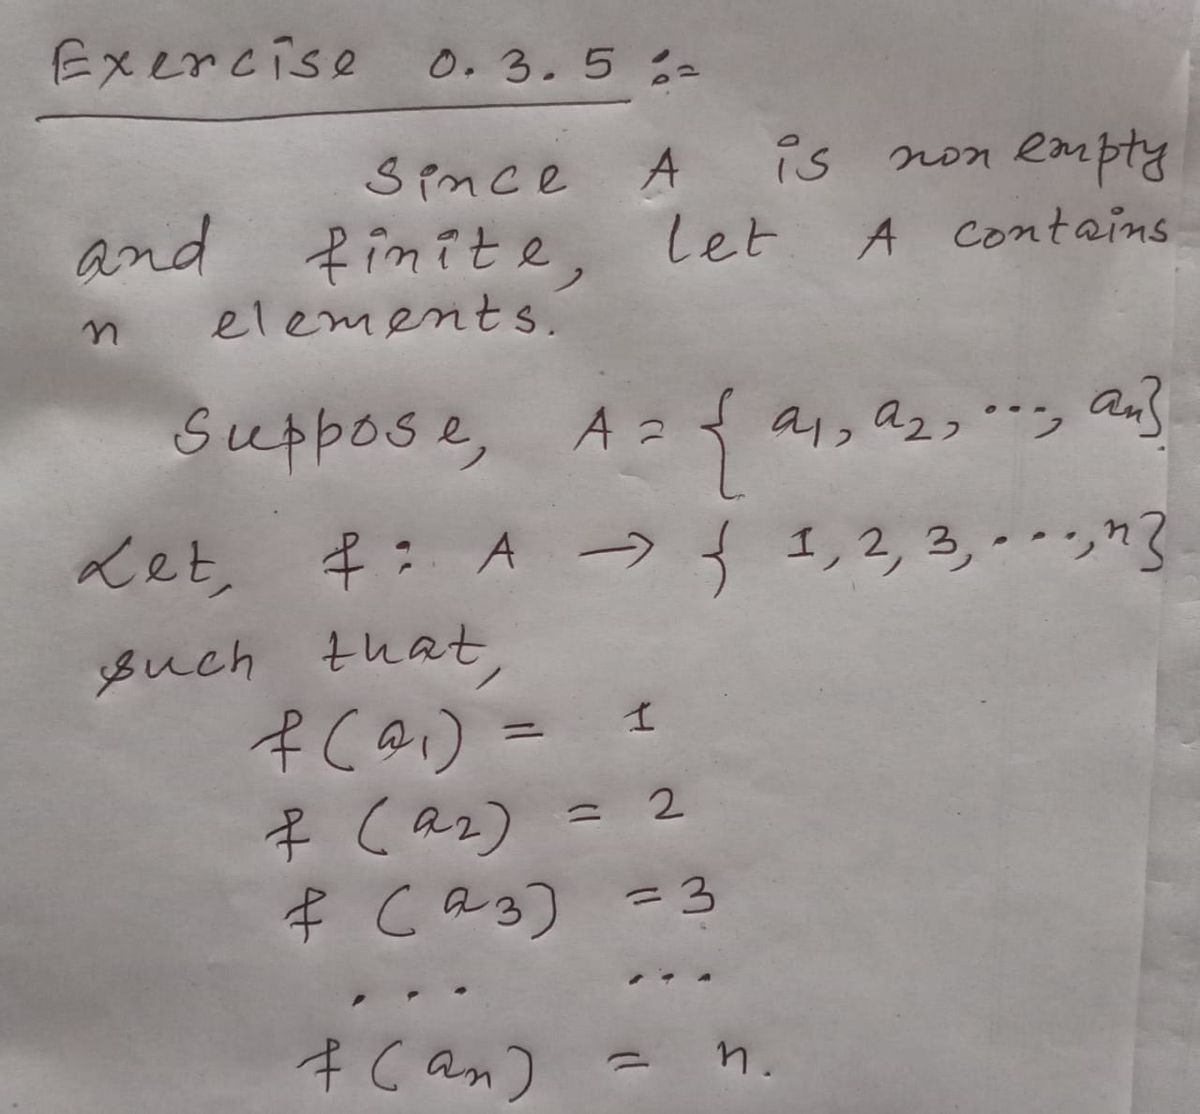 Exercise 0.3.5 :-
Since A is non empty
and finite, let A contains
n elements.
Suppose, A = { a1, a2, ..., an}
Let, f : A → { 1, 2, 3, ..., n}
such that,
f(a1) = 1
f (a2) = 2
f (a3) = 3
... ...
f(an) = n.